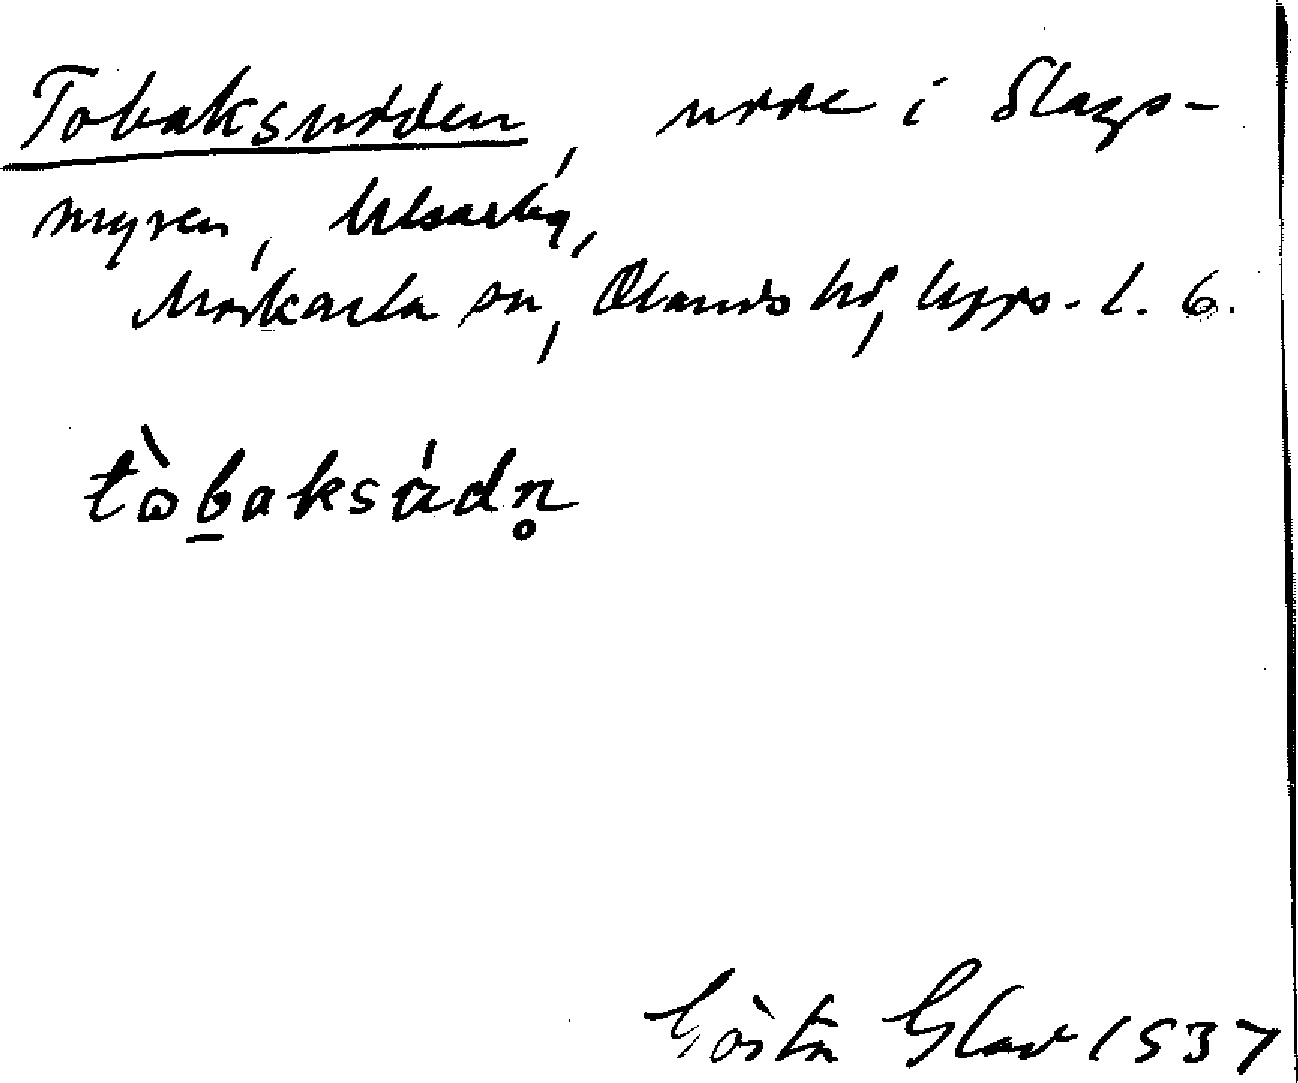 Tobaksudden, udde i Slags-
myren,
Morkarla sn, Ølands hd, Upps. l. 6.
tòbaksúdn̥
Gösta Glav 1937